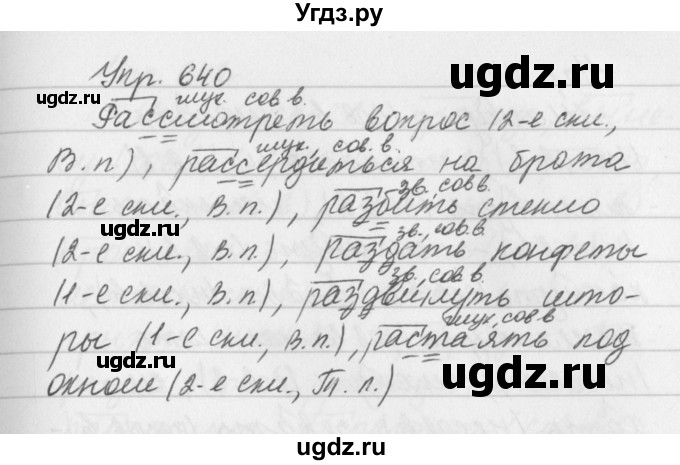 Угдз.ру
Упр. 640
глух. сов в.
Рассмотреть вопрос (2-е скл.,
глух., сов. в.
В.п), рассердиться на брата
зв., сов в.
(2-е скл., В.п.), разбить стекло
зв., сов.в.
(2-е скл., В.п.), раздать конфеты
зв., сов.в.
(1-е скл., В.п.), раздвинуть што-
глух, сов в
ры (1-е скл., В.п.), растаять под
окном (2-е скл., Т.п.)
ugdz.ru
ugdz.ru
ugdz.ru
ugdz.ru
ugdz.ru
ugdz.ru
ugdz.ru
ugdz.ru